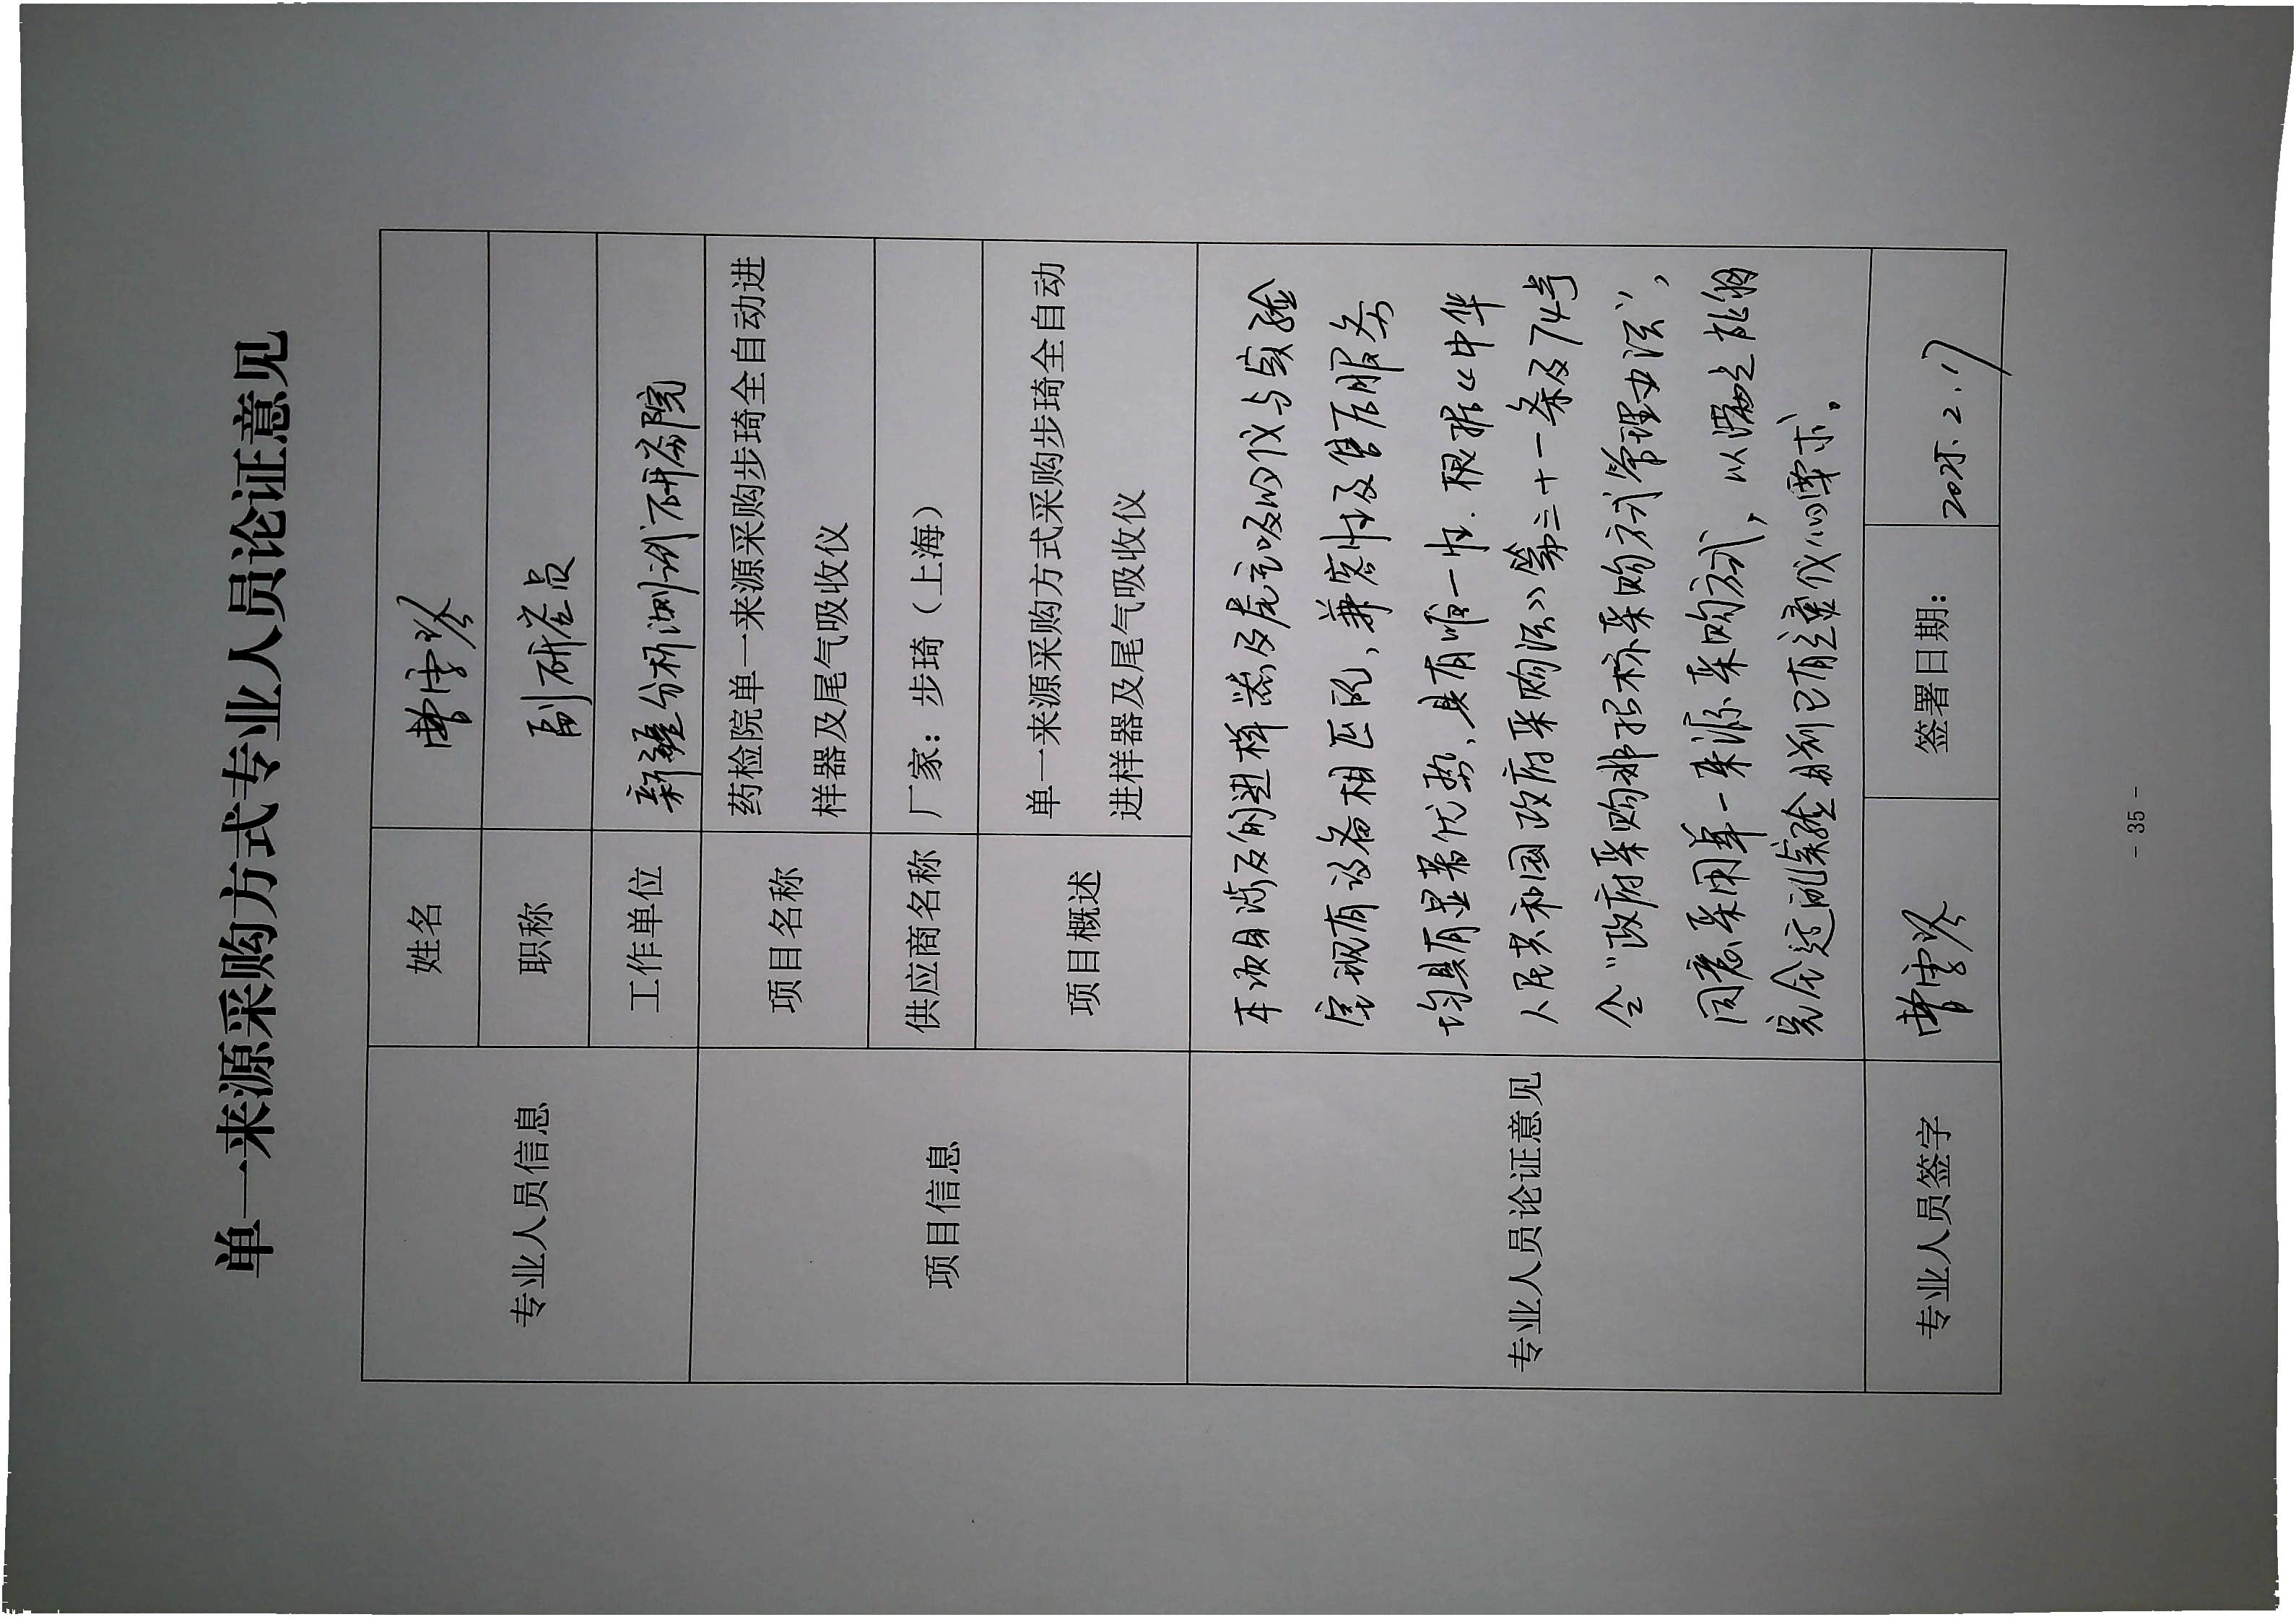 单一来源采购方式专业人员论证意见
专业人员信息
姓名
曹雪琴
职称
副研究员
工作单位
新疆分析测试研究院
项目信息
项目名称
药检院单一来源采购步琦全自动进
样器及尾气吸收仪
供应商名称
厂家：步琦（上海）
项目概述
单一来源采购方式采购步琦全自动
进样器及尾气吸收仪
专业人员论证意见
本项目涉及的进样器及尾气吸收仪与实验
室现有设备相匹配，兼容性及售后服务
均具有显著优势，具有唯一性．根据《中华
人民共和国政府采购法》第三十一条及74号
令“政府采购非招标采购方式管理办法”，
同意采用单一来源采购方式，以满足能够
完全适配实验目前已有定氮仪的要求。
专业人员签字
曹雪琴
签署日期：
2025.2.17
- 35 -